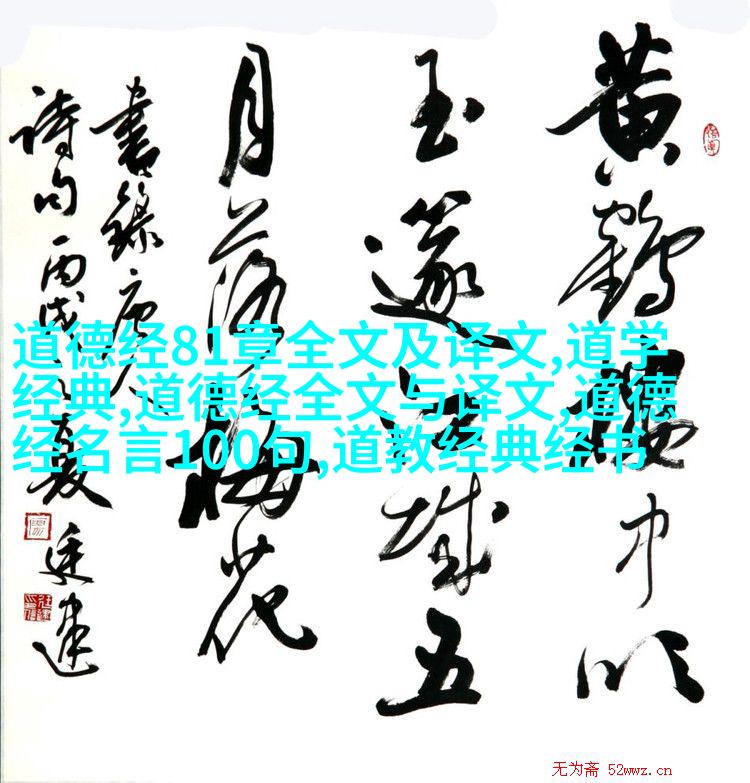 黄鶴樓中吹
玉篴江城五
月落梅花
書錄唐人
詩句丙戌之夏廷建
道德经81章全文及译文,道学
经典,道德经全文与译文,道德
经名言100句,道教经典经书
无为斋 52wwz.cn